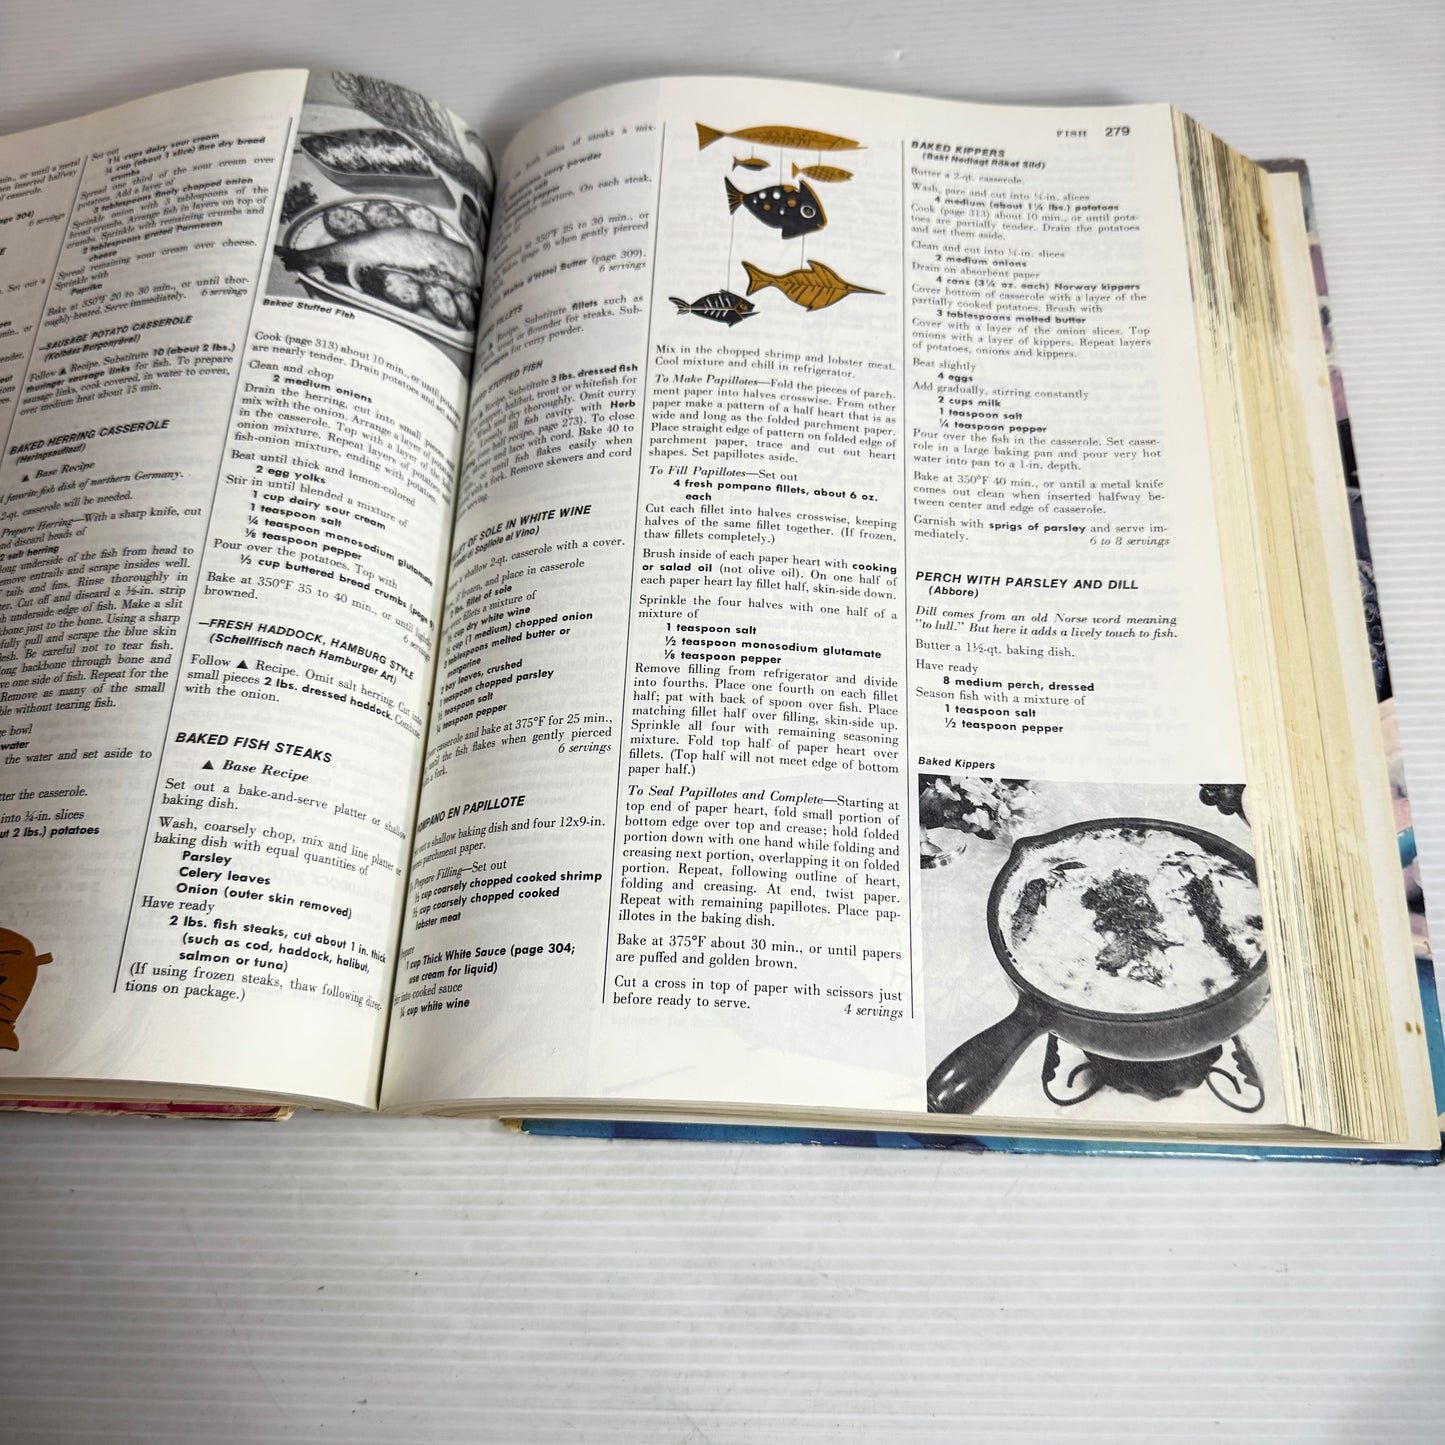 min., or until a metal
en inserted halfway
of casserole.
page 304)
6 servings
Set out
1¼ cups dairy sour cream
¼ cup (about 1 slice) fine dry bread
crumbs
Spread one third of the sour cream over
potatoes. Add a layer of
3 tablespoons finely chopped onion
Sprinkle onion with 3 tablespoons of the
bread crumbs. Arrange fish in layers on top of
crumbs. Sprinkle with remaining crumbs and
2 tablespoons grated Parmesan
cheese
Spread remaining sour cream over cheese.
Sprinkle with
Paprika
Bake at 350°F 20 to 30 min., or until thor-
oughly heated. Serve immediately. 6 servings
—SAUSAGE POTATO CASSEROLE
Follow ▲ Recipe. Substitute 10 (about 2 lbs.)
thuringer sausage links for fish. To prepare
sausage links, cook covered, in water to cover,
over medium heat about 15 min.
BAKED HERRING CASSEROLE
(Heringsauflauf)
▲ Base Recipe
A favorite fish dish of northern Germany.
2-qt. casserole will be needed.
Prepare Herring—With a sharp knife, cut
and discard heads of
2 salt herring
long underside of the fish from head to
emove entrails and scrape insides well.
tails and fins. Rinse thoroughly in
ter. Cut off and discard a ½-in. strip
h underside edge of fish. Make a slit
kbone just to the bone. Using a sharp
fully pull and scrape the blue skin
lesh. Be careful not to tear fish.
ong backbone through bone and
ve one side of fish. Repeat for the
Remove as many of the small
ble without tearing fish.
ge bowl
water
the water and set aside to
tter the casserole.
into ¾-in. slices
ut 2 lbs.) potatoes
Baked Stuffed Fish
Cook (page 313) about 10 min., or until potatoes
are nearly tender. Drain potatoes and set
Clean and chop
2 medium onions
Drain the herring, cut into small pieces and
mix with the onion. Arrange a layer of potatoes
in the casserole. Top with a layer of the
onion mixture. Repeat layers of potatoes
fish-onion mixture, ending with potatoes.
Beat until thick and lemon-colored
2 egg yolks
Stir in until blended a mixture of
1 cup dairy sour cream
1 teaspoon salt
¼ teaspoon monosodium glutamate
⅛ teaspoon pepper
Pour over the potatoes. Top with
⅓ cup buttered bread crumbs (page
Bake at 350°F 35 to 40 min., or until lightly
browned.
6 servings
—FRESH HADDOCK, HAMBURG STYLE
(Schellfisch nach Hamburger Art)
Follow ▲ Recipe. Omit salt herring. Cut into
small pieces 2 lbs. dressed haddock. Combine
with the onion.
BAKED FISH STEAKS
▲ Base Recipe
Set out a bake-and-serve platter or shallow
baking dish.
Wash, coarsely chop, mix and line platter or
baking dish with equal quantities of
Parsley
Celery leaves
Onion (outer skin removed)
Have ready
2 lbs. fish steaks, cut about 1 in. thick
(such as cod, haddock, halibut,
salmon or tuna)
(If using frozen steaks, thaw following direc-
tions on package.)
both sides of steaks a mix-
curry powder
salt
pepper
mixture. On each steak,
at 350°F 25 to 30 min., or
flakes (page 9) when gently pierced
Maitre d'Hôtel Butter (page 309).
6 servings
FILLETS
Recipe. Substitute fillets such as
trout or flounder for steaks. Sub-
for curry powder.
STUFFED FISH
Recipe. Substitute 3 lbs. dressed fish
halibut, trout or whitefish for
and dry thoroughly. Omit curry
fill fish cavity with Herb
half recipe, page 273). To close
and lace with cord. Bake 40 to
until fish flakes easily when
fork. Remove skewers and cord
serving.
FILLET OF SOLE IN WHITE WINE
(Filetti di Sogliole al Vino)
a shallow 2-qt. casserole with a cover.
if frozen, and place in casserole
lbs. fillet of sole
over fillets a mixture of
cup dry white wine
cup (1 medium) chopped onion
3 tablespoons melted butter or
margarine
2 bay leaves, crushed
teaspoon chopped parsley
teaspoon salt
teaspoon pepper
casserole and bake at 375°F for 25 min.,
until the fish flakes when gently pierced
a fork.
6 servings
POMPANO EN PAPILLOTE
out a shallow baking dish and four 12x9-in.
parchment paper.
To Prepare Filling—Set out
½ cup coarsely chopped cooked shrimp
½ cup coarsely chopped cooked
lobster meat
Prepare
1 cup Thick White Sauce (page 304;
use cream for liquid)
Stir into cooked sauce
¼ cup white wine
Mix in the chopped shrimp and lobster meat.
Cool mixture and chill in refrigerator.
To Make Papillotes—Fold the pieces of parch-
ment paper into halves crosswise. From other
paper make a pattern of a half heart that is as
wide and long as the folded parchment paper.
Place straight edge of pattern on folded edge of
parchment paper, trace and cut out heart
shapes. Set papillotes aside.
To Fill Papillotes—Set out
4 fresh pompano fillets, about 6 oz.
each
Cut each fillet into halves crosswise, keeping
halves of the same fillet together. (If frozen,
thaw fillets completely.)
Brush inside of each paper heart with cooking
or salad oil (not olive oil). On one half of
each paper heart lay fillet half, skin-side down.
Sprinkle the four halves with one half of a
mixture of
1 teaspoon salt
½ teaspoon monosodium glutamate
⅛ teaspoon pepper
Remove filling from refrigerator and divide
into fourths. Place one fourth on each fillet
half; pat with back of spoon over fish. Place
matching fillet half over filling, skin-side up.
Sprinkle all four with remaining seasoning
mixture. Fold top half of paper heart over
fillets. (Top half will not meet edge of bottom
paper half.)
To Seal Papillotes and Complete—Starting at
top end of paper heart, fold small portion of
bottom edge over top and crease; hold folded
portion down with one hand while folding and
creasing next portion, overlapping it on folded
portion. Repeat, following outline of heart,
folding and creasing. At end, twist paper.
Repeat with remaining papillotes. Place pap-
illotes in the baking dish.
Bake at 375°F about 30 min., or until papers
are puffed and golden brown.
Cut a cross in top of paper with scissors just
before ready to serve.
4 servings
FISH 279
BAKED KIPPERS
(Bakt Nedlagt Röket Sild)
Butter a 2-qt. casserole.
Wash, pare and cut into ¼-in. slices
4 medium (about 1¼ lbs.) potatoes
Cook (page 313) about 10 min., or until pota-
toes are partially tender. Drain the potatoes
and set them aside.
Clean and cut into ¼-in. slices
2 medium onions
Drain on absorbent paper
4 cans (3¼ oz. each) Norway kippers
Cover bottom of casserole with a layer of the
partially cooked potatoes. Brush with
3 tablespoons melted butter
Cover with a layer of the onion slices. Top
onions with a layer of kippers. Repeat layers
of potatoes, onions and kippers.
Beat slightly
4 eggs
Add gradually, stirring constantly
2 cups milk
1 teaspoon salt
¼ teaspoon pepper
Pour over the fish in the casserole. Set casse-
role in a large baking pan and pour very hot
water into pan to a 1-in. depth.
Bake at 350°F 40 min., or until a metal knife
comes out clean when inserted halfway be-
tween center and edge of casserole.
Garnish with sprigs of parsley and serve im-
mediately.
6 to 8 servings
PERCH WITH PARSLEY AND DILL
(Abbore)
Dill comes from an old Norse word meaning
"to lull." But here it adds a lively touch to fish.
Butter a 1½-qt. baking dish.
Have ready
8 medium perch, dressed
Season fish with a mixture of
1 teaspoon salt
½ teaspoon pepper
Baked Kippers